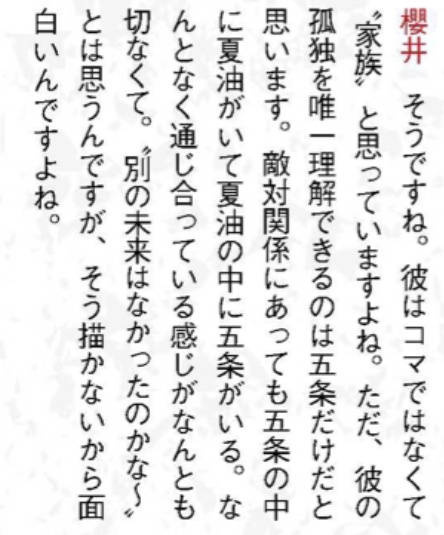 櫻井　そうですね。彼はコマではなくて
〝家族〟と思っていますよね。ただ、彼の
孤独を唯一理解できるのは五条だけだと
思います。敵対関係にあっても五条の中
に夏油がいて夏油の中に五条がいる。な
んとなく通じ合っている感じがなんとも
切なくて。〝別の未来はなかったのかな〜〟
とは思うんですが、そう描かないから面
白いんですよね。